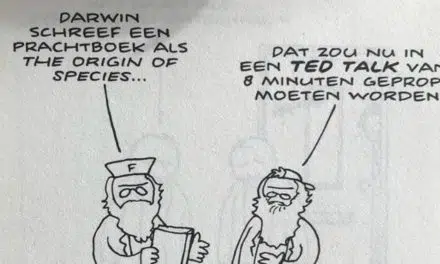 DARWIN
SCHREEF EEN
PRACHTBOEK ALS
THE ORIGIN OF
SPECIES...
DAT ZOU NU IN
EEN TED TALK VAN
8 MINUTEN GEPROP
MOETEN WORDEN
F